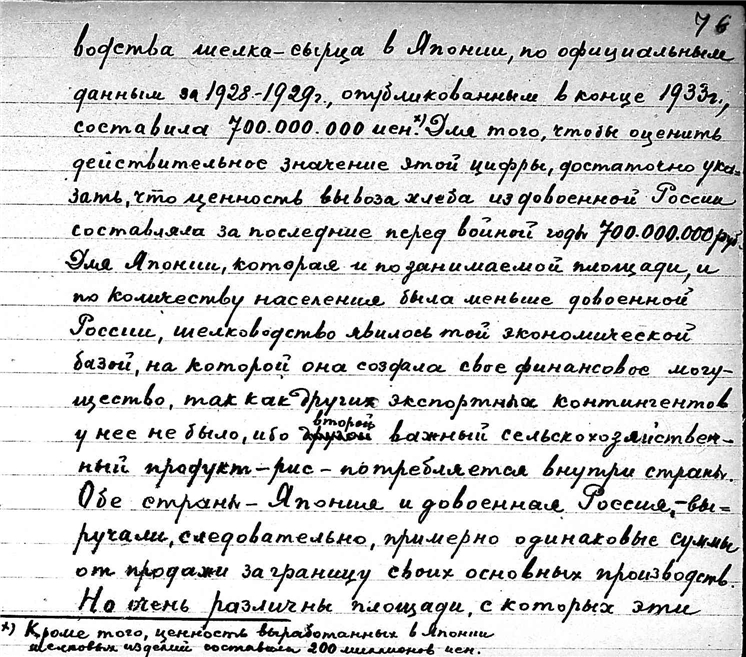 76
водства шелка-сырца в Японии, по официальным
данным за 1928-1929г., опубликованным в конце 1933г.,
составила 700.000.000 иен.х) Для того, чтобы оценить
действительное значение этой цифры, достаточно ука-
зать, что ценность вывоза хлеба из довоенной России
составляла за последние перед войной годы 700.000.000 руб.
Для Японии, которая и по занимаемой площади, и
по количеству населения была меньше довоенной
России, шелководство явилось той экономической
базой, на которой она создала свое финансовое могу-
щество, так как других экспортных контингентов
у нее не было, ибо второй важный сельскохозяйствен-
ный продукт - рис - потребляется внутри страны.
Обе страны - Япония и довоенная Россия, - вы-
ручали, следовательно, примерно одинаковые суммы
от продажи заграницу своих основных производств.
Но очень различны площади, с которых эти
х) Кроме того, ценность выработанных в Японии
шелковых изделий составила 200 миллионов иен.